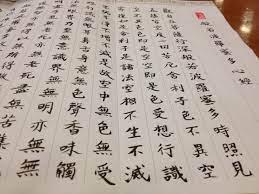 般若波羅蜜多心經
觀自在菩薩行深般若波羅蜜多時照見
五蘊皆空度一切苦厄舍利子色不異空
空不異色色即是空空即是色受想行識
亦復如是舍利子是諸法空相不生不滅
不垢不淨不增不減是故空中無色無受
想行識無眼耳鼻舌身意無色聲香味觸
法無眼界乃至無意識界無無明亦無
老死亦無老死盡無苦集